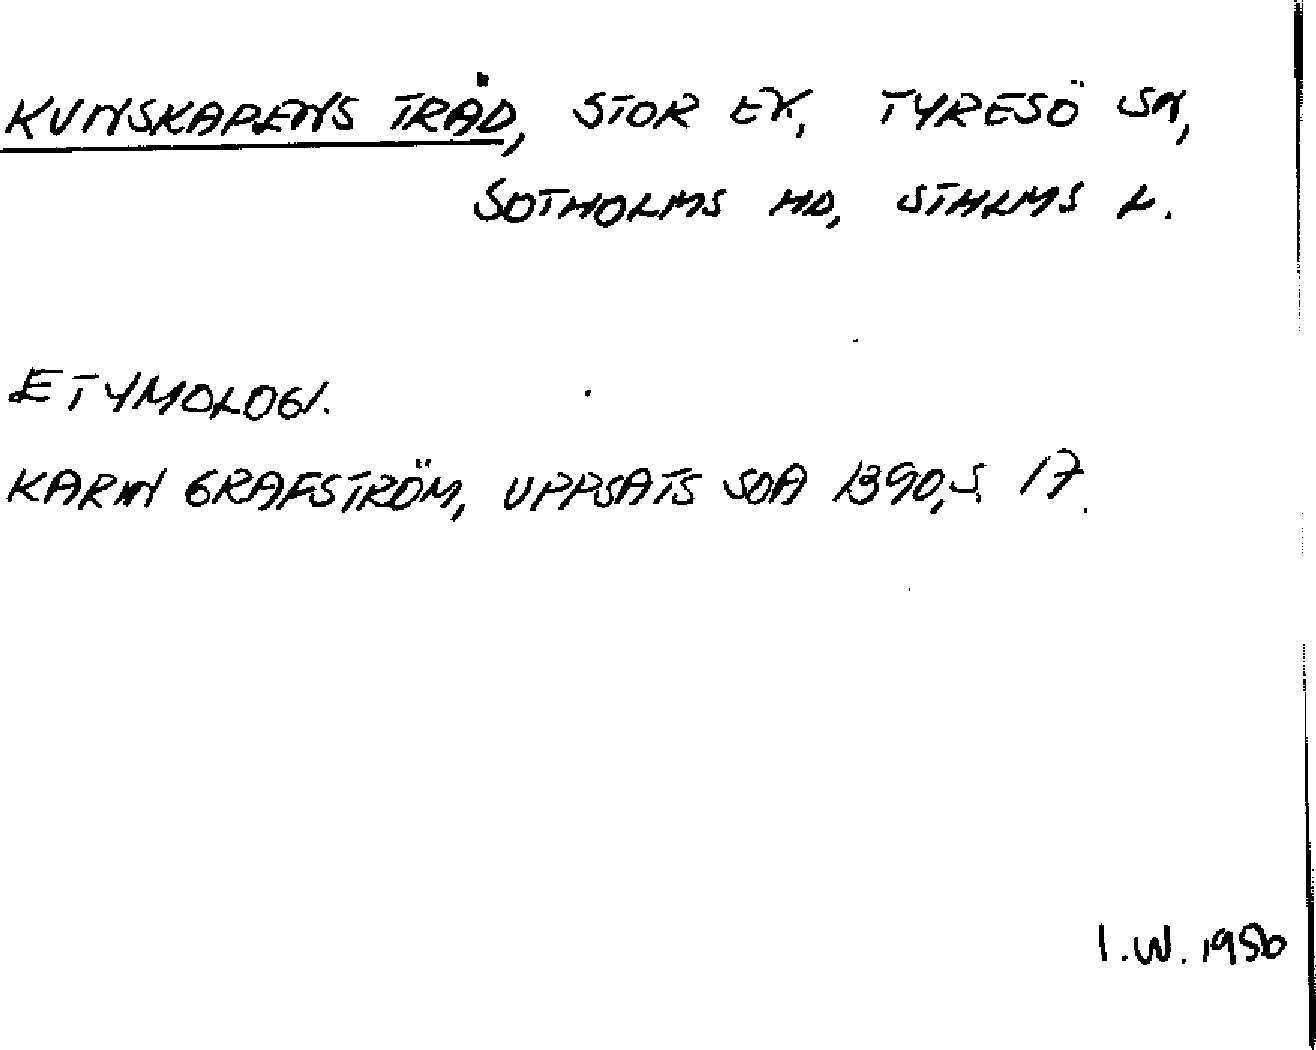 KUNSKAPENS TRÄD, STOR EK, TYRESÖ SN,
SOTHOLMS HD, STHLMS L.
ETYMOLOGI.
KARIN GRAFSTRÖM, UPPSATS SOA 1390, S. 17.
I.W. 1986